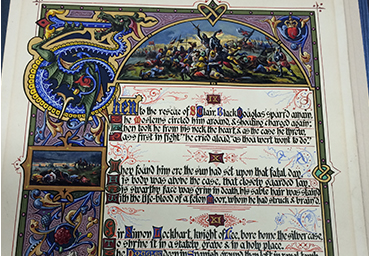 IX
Then to the rescue of St Clair Black Douglas spurr'd amain,
The Moslems circled him around, & shouting charged again;
Then took he from his neck the heart, & as the case he threw,
"Pass first in fight" he cried aloud, "as thou wert wont to do."
X
They found him ere the sun had set upon that fatal day,
His body was above the case, that closely guarded lay,
His swarthy face was grim in death, his sable hair was stain'd
With the life-blood of a felon Moor, whom he had struck & brain'd.
XI
Sir Simon Lockhart, knight of Lee, bore home the silver case
To shrine it in a stately grave & in a holy place.
The Douglas deep in Spanish ground they left in royal tomb